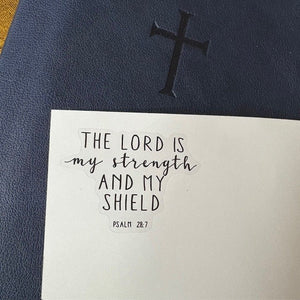 THE LORD IS
my strength
AND MY
SHIELD
PSALM 28:7